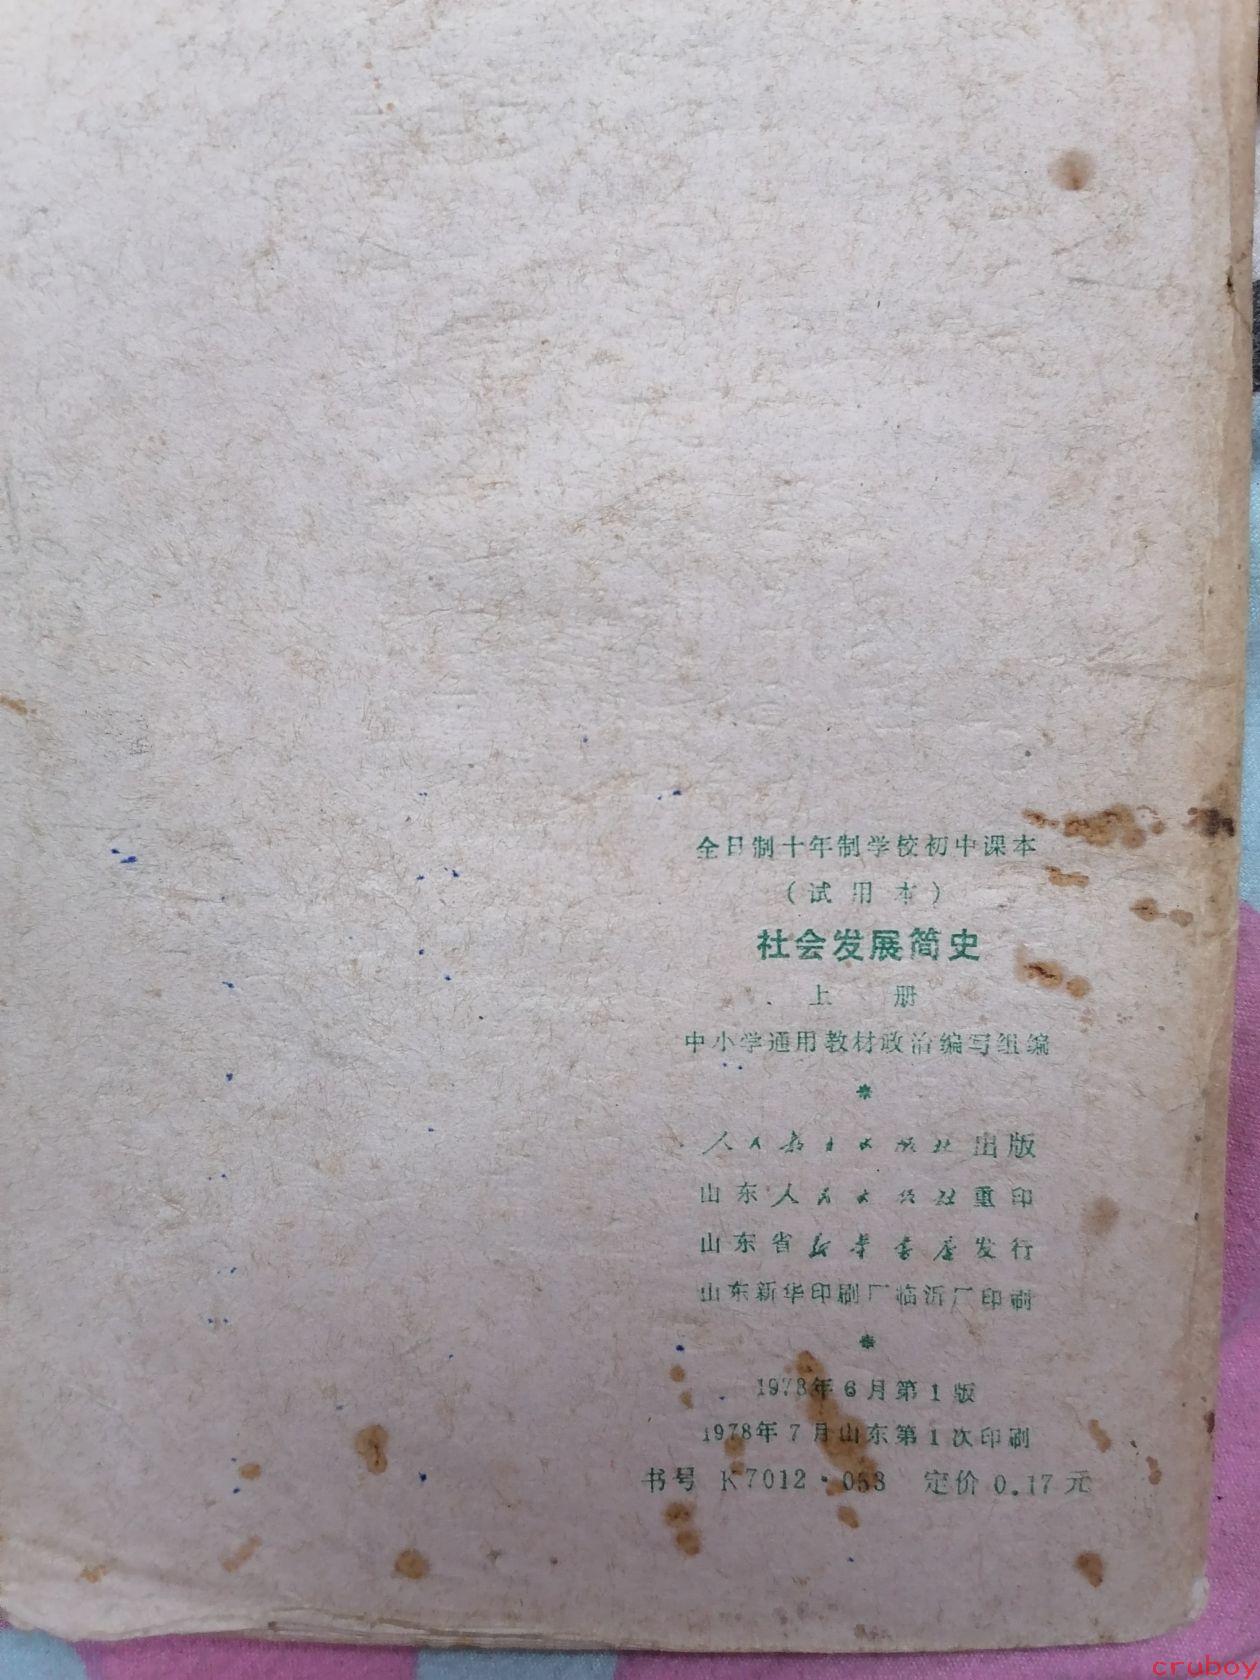 全日制十年制学校初中课本
（试用本）
社会发展简史
上 册
中小学通用教材政治编写组编
*
人民教育出版社出版
山东人民出版社重印
山东省新华书店发行
山东新华印刷厂临沂厂印刷
*
1978年6月第1版
1978年7月山东第1次印刷
书号 K7012·053 定价 0.17元
cruboy